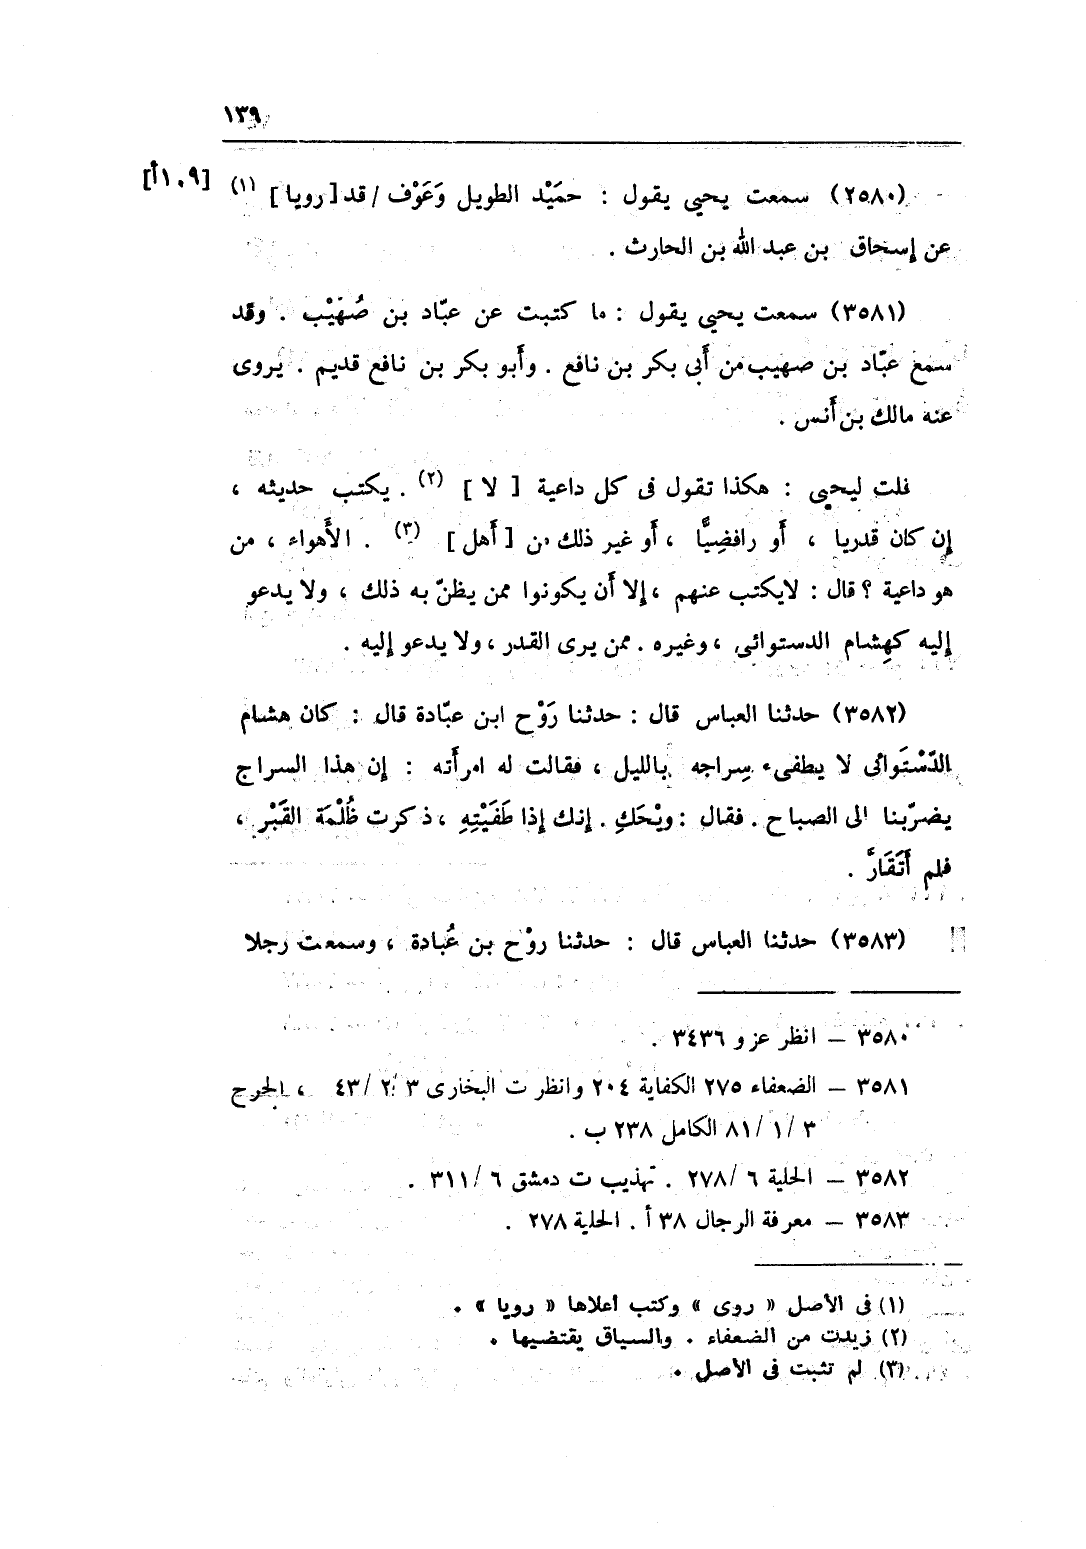 ١٣٩
(٢٥٨٠) سمعت يحيى يقول : حمَيْد الطويل وَعَوْف / قد [ رويا ] (١) [١٠٩أ]
عن إسحاق بن عبد الله بن الحارث .
(٣٥٨١) سمعت يحيى يقول : ما كتبت عن عبّاد بن صُهَيْب . وقد
سمع عبّاد بن صهيب من أَبى بكر بن نافع . وأَبو بكر بن نافع قديم . يروى
عنه مالك بن أَنس .
قلت ليحيى : هكذا تقول فى كل داعية [ لا ] (٢) . يكتب حديثه ،
إِن كان قدريا ، أَو رافضِيًّا ، أَو غير ذلك من [ أَهل ] (٣) . الأَهواء ، من
هو داعية ؟ قال : لايكتب عنهم ، إلا أَن يكونوا ممن يظنّ به ذلك ، ولا يدعو
إليه كهِشام الدستوائى ، وغيره . ممن يرى القدر ، ولا يدعو إليه .
(٣٥٨٢) حدثنا العباس قال : حدثنا رَوْح ابن عبّادة قال : كان هشام
الدّسْتَوائى لا يطفىء سِراجه بالليل ، فقالت له امرأَته : إن هذا السراج
يضرّبنا الى الصباح . فقال : ويْحَكِ . إنك إذا طَفَيْتِهِ ، ذكرت ظُلْمَة القَبْر ،
فلم أَتَقَارَّ .
(٣٥٨٣) حدثنا العباس قال : حدثنا روْح بن عُبادة ، وسمعت رجلا
٣٥٨٠ – انظر عزو ٣٤٣٦ .
٣٥٨١ – الضعفاء ٢٧٥ الكفاية ٢٠٤ وانظر ت البخارى ٣ / ٢ / ٤٣ ، الجرح
٣ / ١ / ٨١ الكامل ٢٣٨ ب .
٣٥٨٢ – الحلية ٦ / ٢٧٨ . تهذيب ت دمشق ٦ / ٣١١ .
٣٥٨٣ – معرفة الرجال ٣٨ أ . الحلية ٢٧٨ .
(١) فى الأصل « روى » وكتب اعلاها « رويا » .
(٢) زيدت من الضعفاء . والسياق يقتضيها .
(٣) لم تثبت فى الأصل .